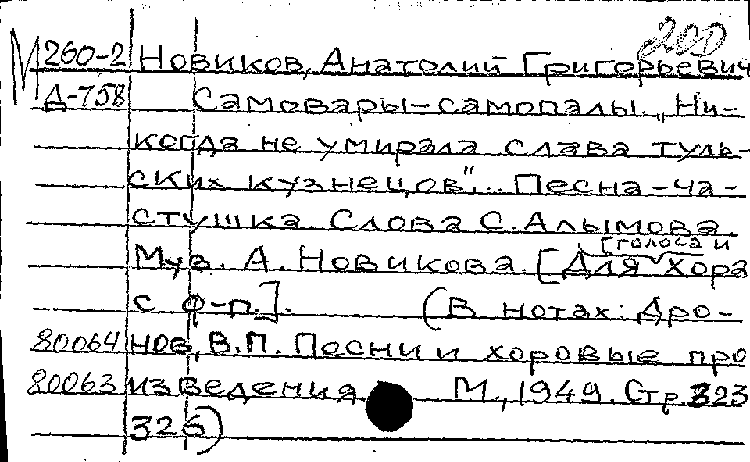 200
М 260-2 Новиков, Анатолий Григорьевич
Д-758 Самовары-самопалы. „Ни-
когда не умирала слава туль-
ских кузнецов"... Песня-ча-
стушка. Слова С. Алымова.
[голоса и
Муз. А. Новикова. [Для хора
с ф-п.]. (В нотах: Дро-
80064 нов, В.П. Песни и хоровые про
80063 изведения М., 1949. Стр. 323
326)